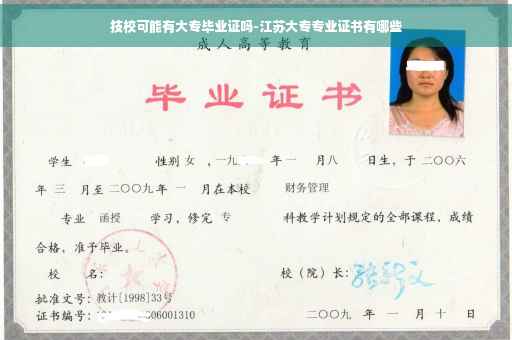 技校可能有大专毕业证吗-江苏大专专业证书有哪些
成人高等教育
毕业证书
学生 性别 女 ，一九 年 一 月八 日生，于 二〇〇六
年 三 月至 二〇〇九 年 一 月在本校 财务管理
专业 函授 学习，修完 专 科教学计划规定的全部课程，成绩
合格，准予毕业。
校 名： 校（院）长：
批准文号：教计[1998]33号
证书编号： 06001310 二〇〇九 年 一 月 十 日